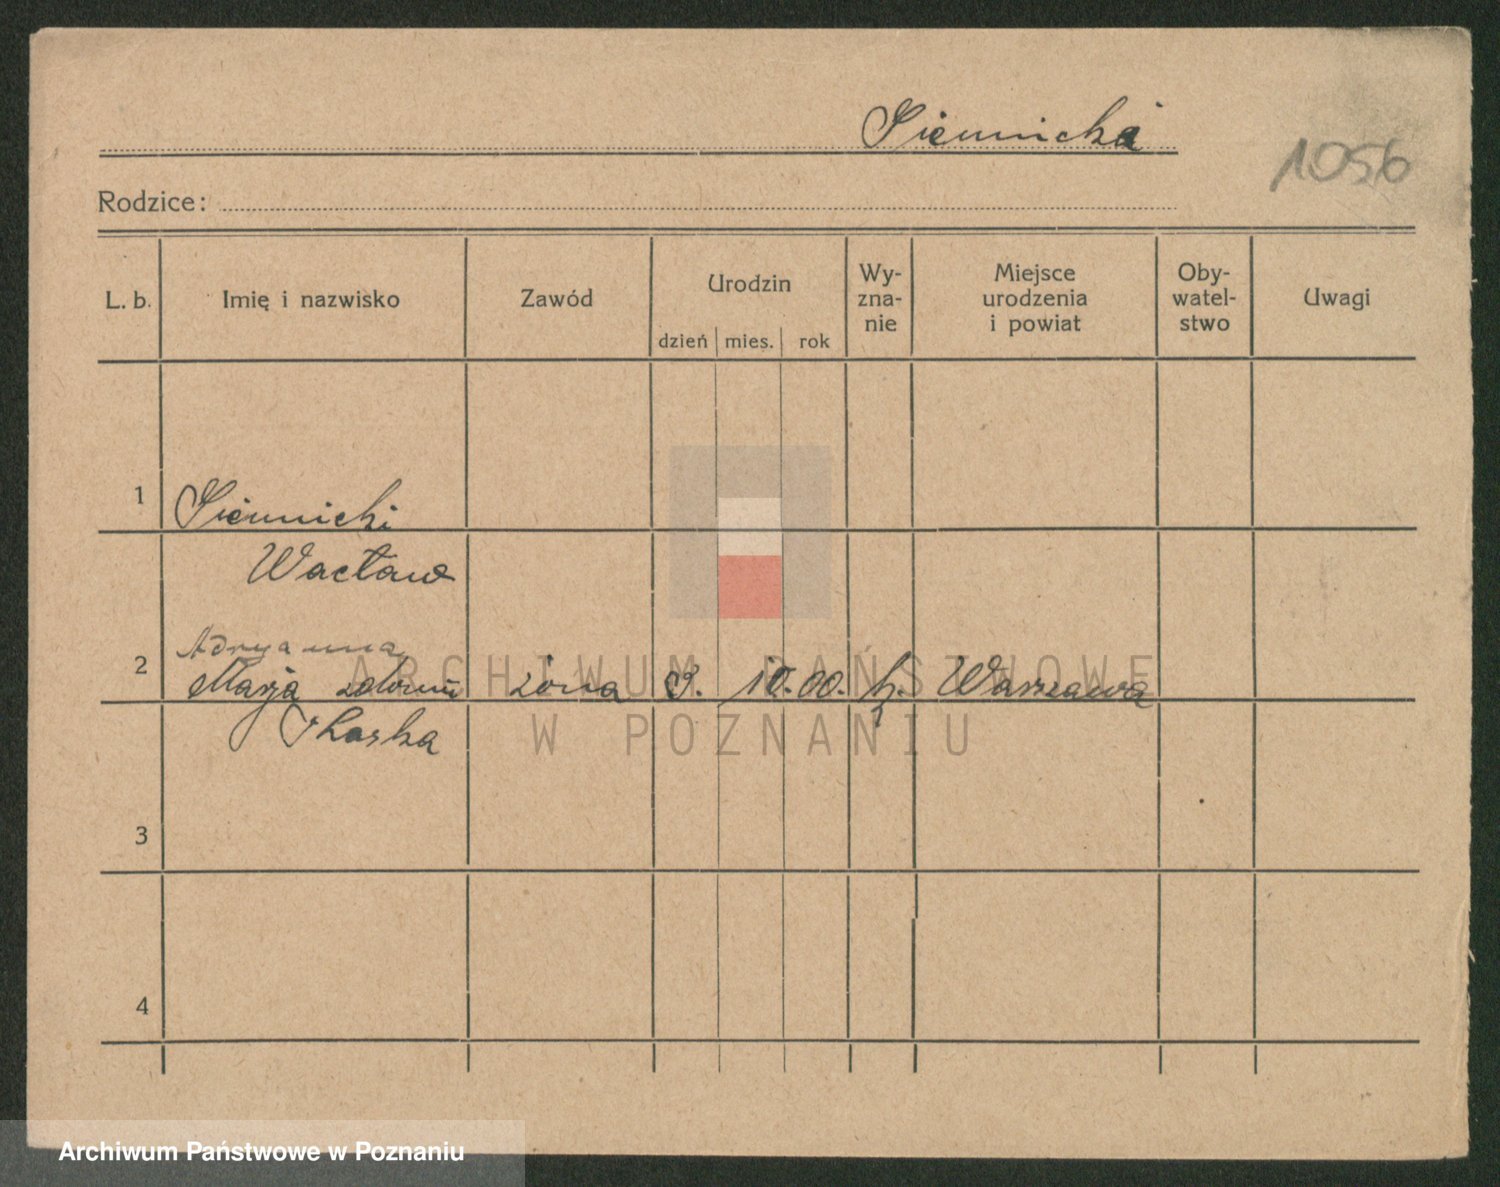 Siennicka
1056
Rodzice:
L. b. Imię i nazwisko Zawód Urodzin dzień mies. rok Wy-zna-nie Miejsce urodzenia i powiat Oby-watel-stwo Uwagi
1 Siennicki
Wacław
Adryanna
2 Marja żona 10. 00. Warszawa
3
4
ARCHIWUM PAŃSTWOWE
W POZNANIU
Archiwum Państwowe w Poznaniu